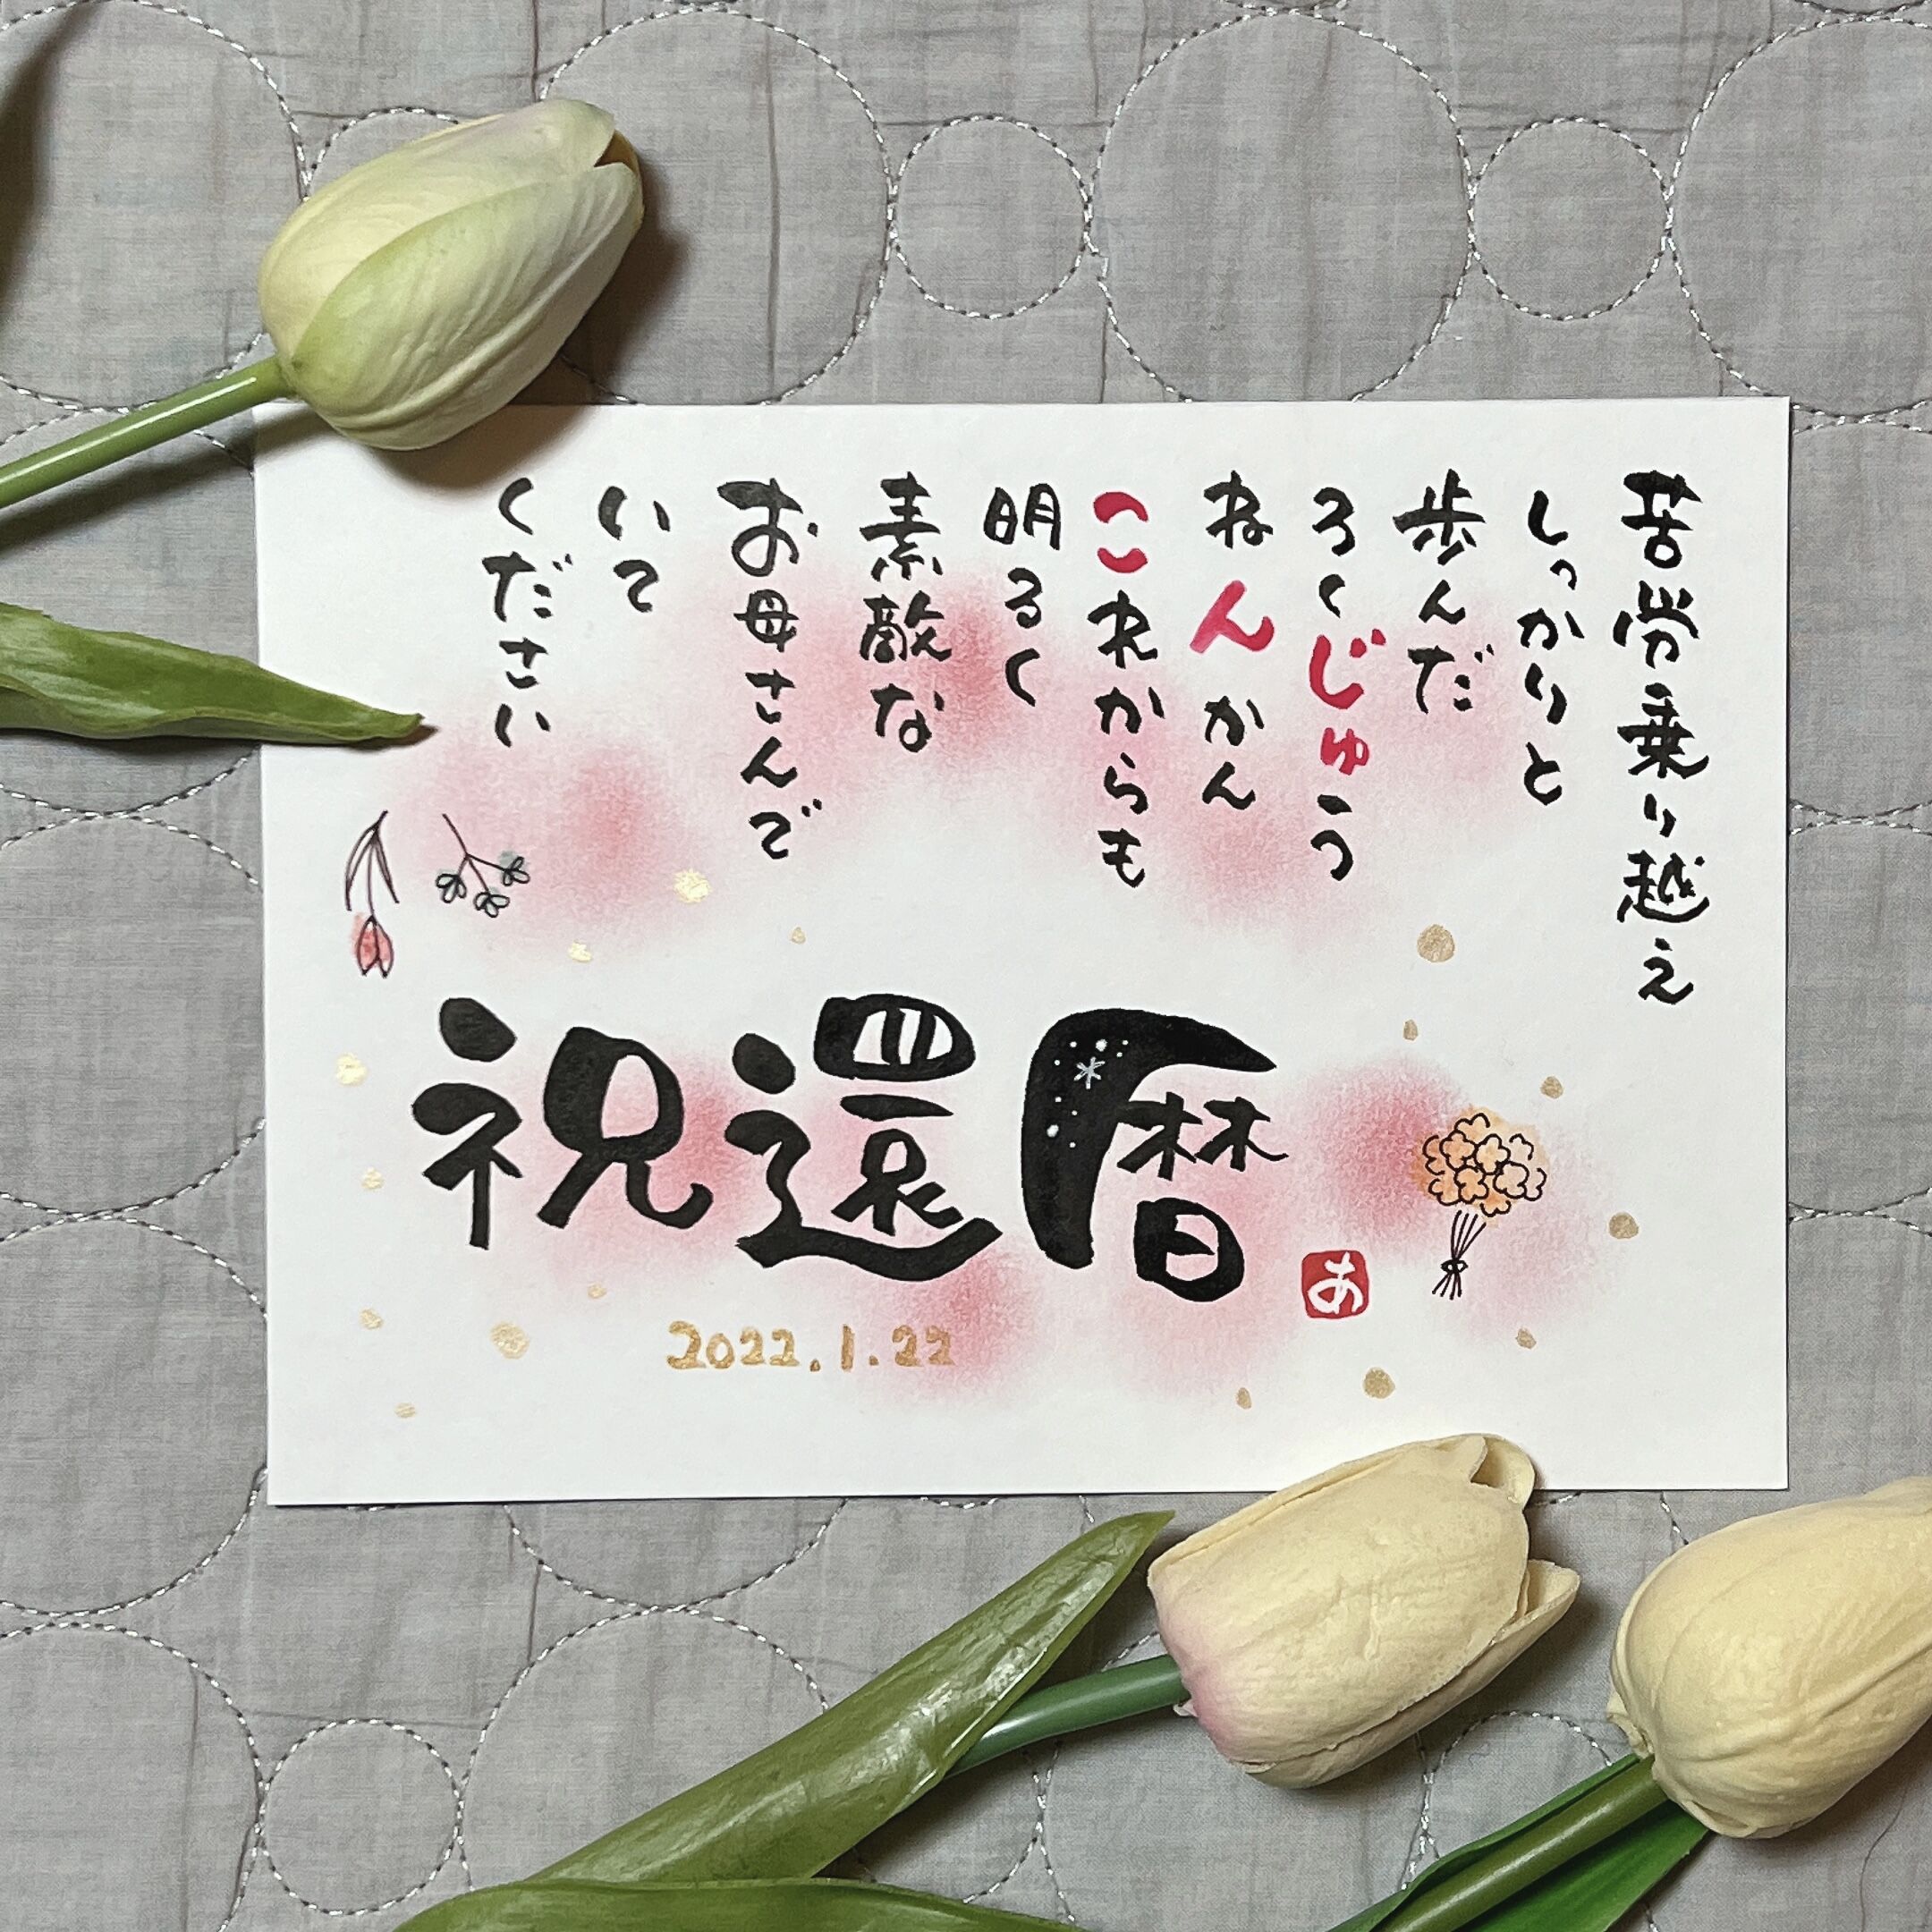 苦労乗り越え
しっかりと
歩んだ
ろくじゅう
ねんかん
これからも
明るく
素敵な
お母さんで
いて
ください
祝還暦
あ
2022.1.22